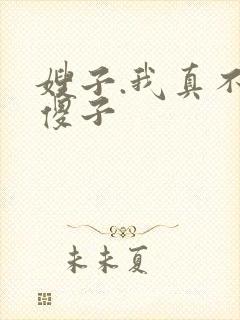 嫂子,我真不
傻子
未未夏